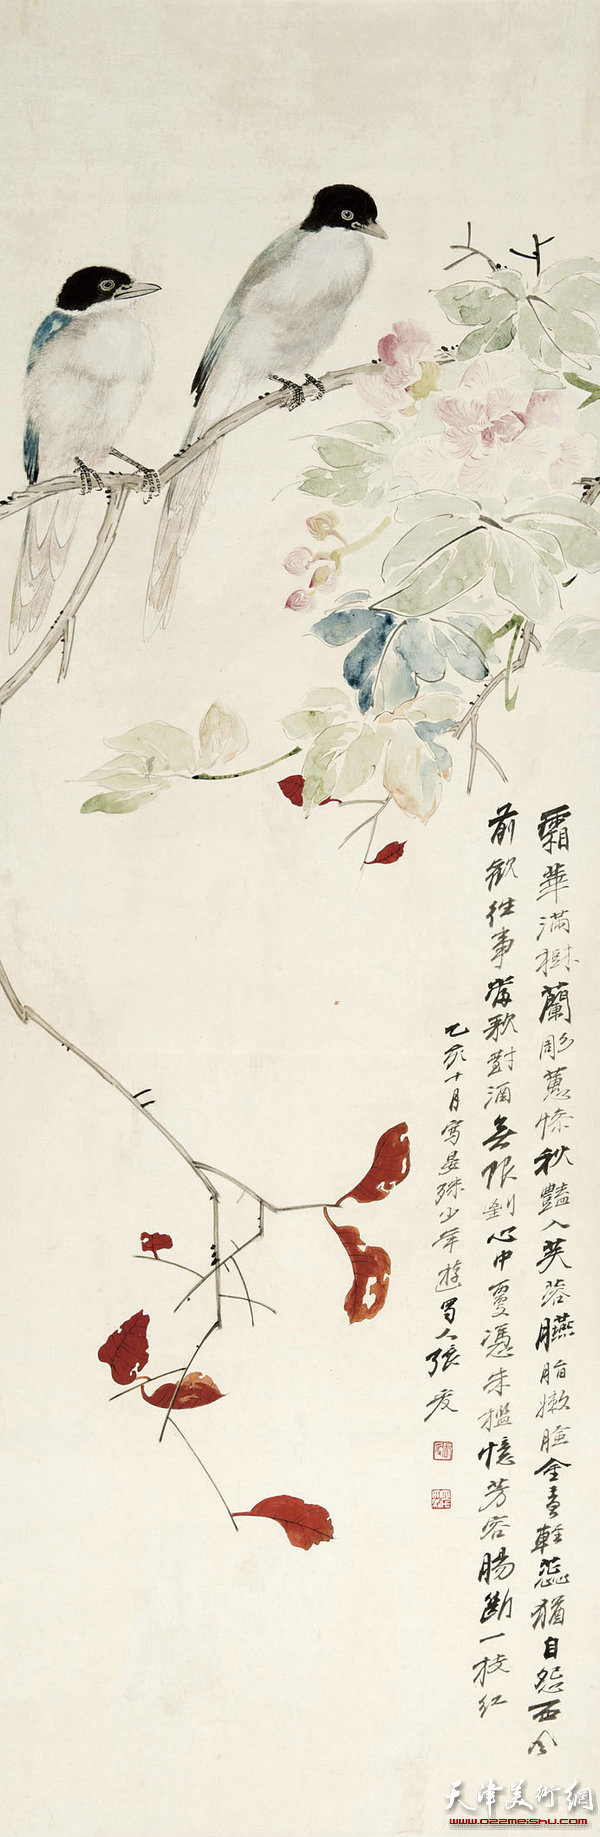 霜華滿樹蘭彫蕙慘秋豔入芙蓉臙脂嫩臉金黃輕蕊猶自怨西風
前歡往事當歌對酒無限到心中更憑朱檻憶芳容腸斷一枝紅
乙亥十月寫晏殊少年遊蜀人張爰
天津美術網
www.022meishu.com